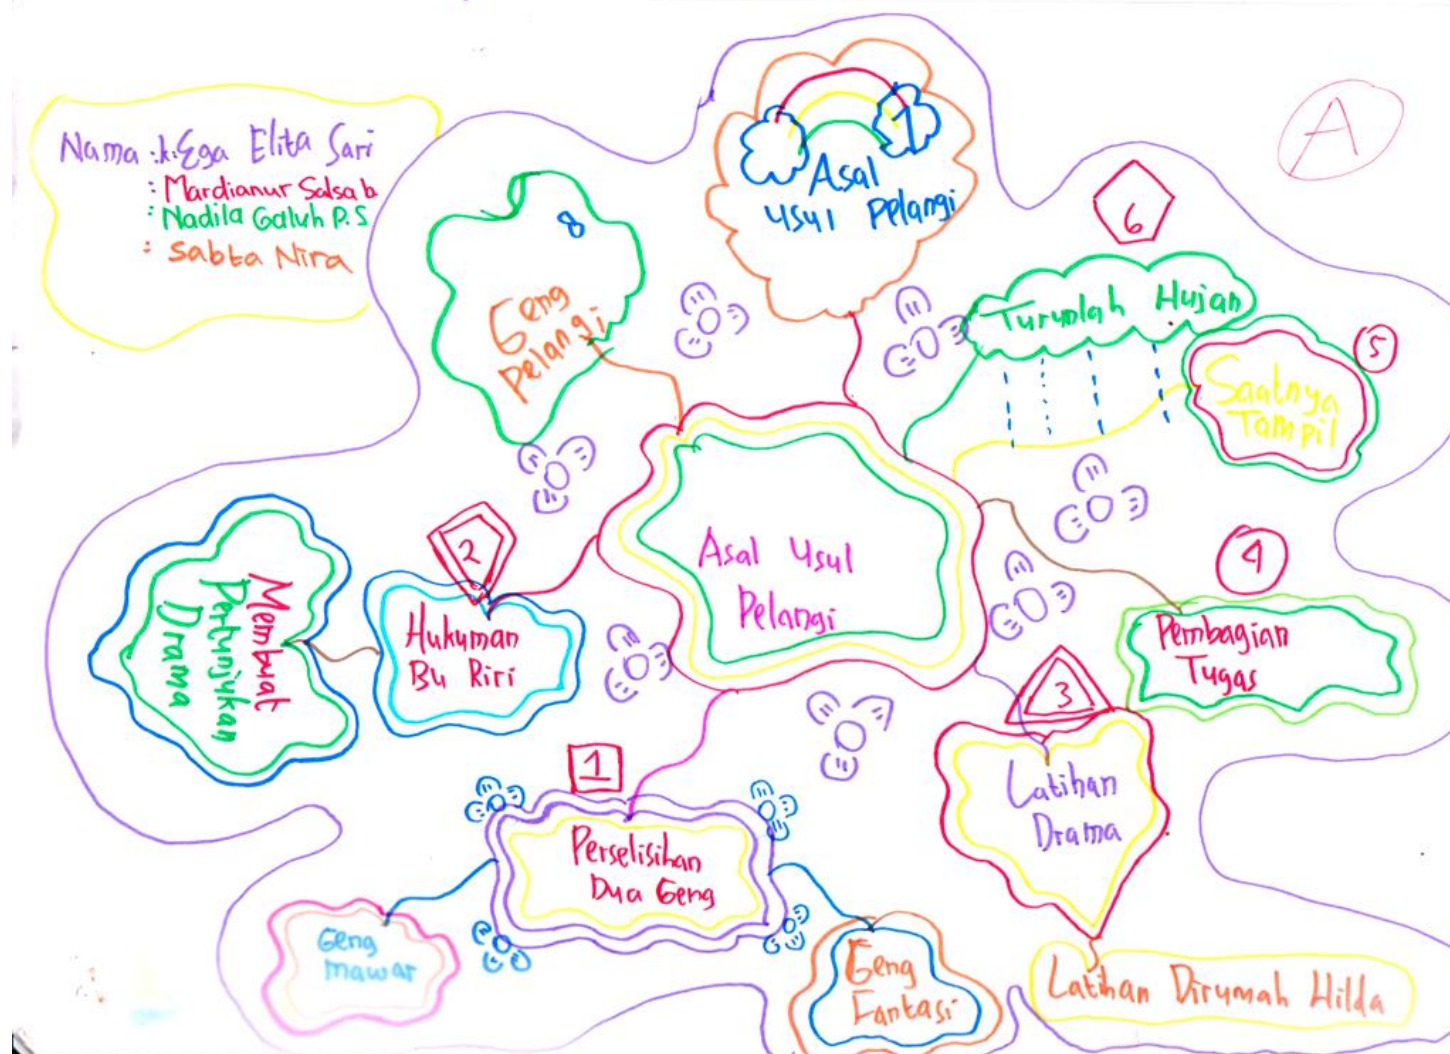 Nama : k. Ega Elita Sari
: Mardianur Salsa b
: Nadila Galuh P. S
: Sabta Nira
A
7
Asal
Usul Pelangi
8
Geng
Pelangi
6
Turunlah Hujan
5
Saatnya
Tampil
Asal Usul
Pelangi
2
Hukuman
Bu Riri
Membuat
Pertunjukan
Drama
4
Pembagian
Tugas
3
Latihan
Drama
Latihan Dirumah Hilda
1
Perselisihan
Dua Geng
Geng
mawar
Geng
Fantasi